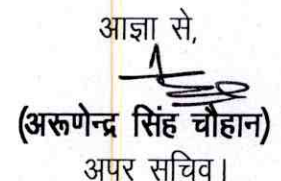 आज्ञा से,
(अरूणेन्द्र सिंह चौहान)
अपर सचिव।